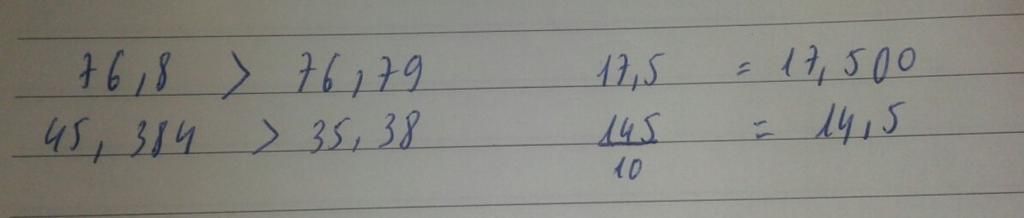 76,8 > 76,79 17,5 = 17,500
45,384 > 35,38 145/10 = 14,5